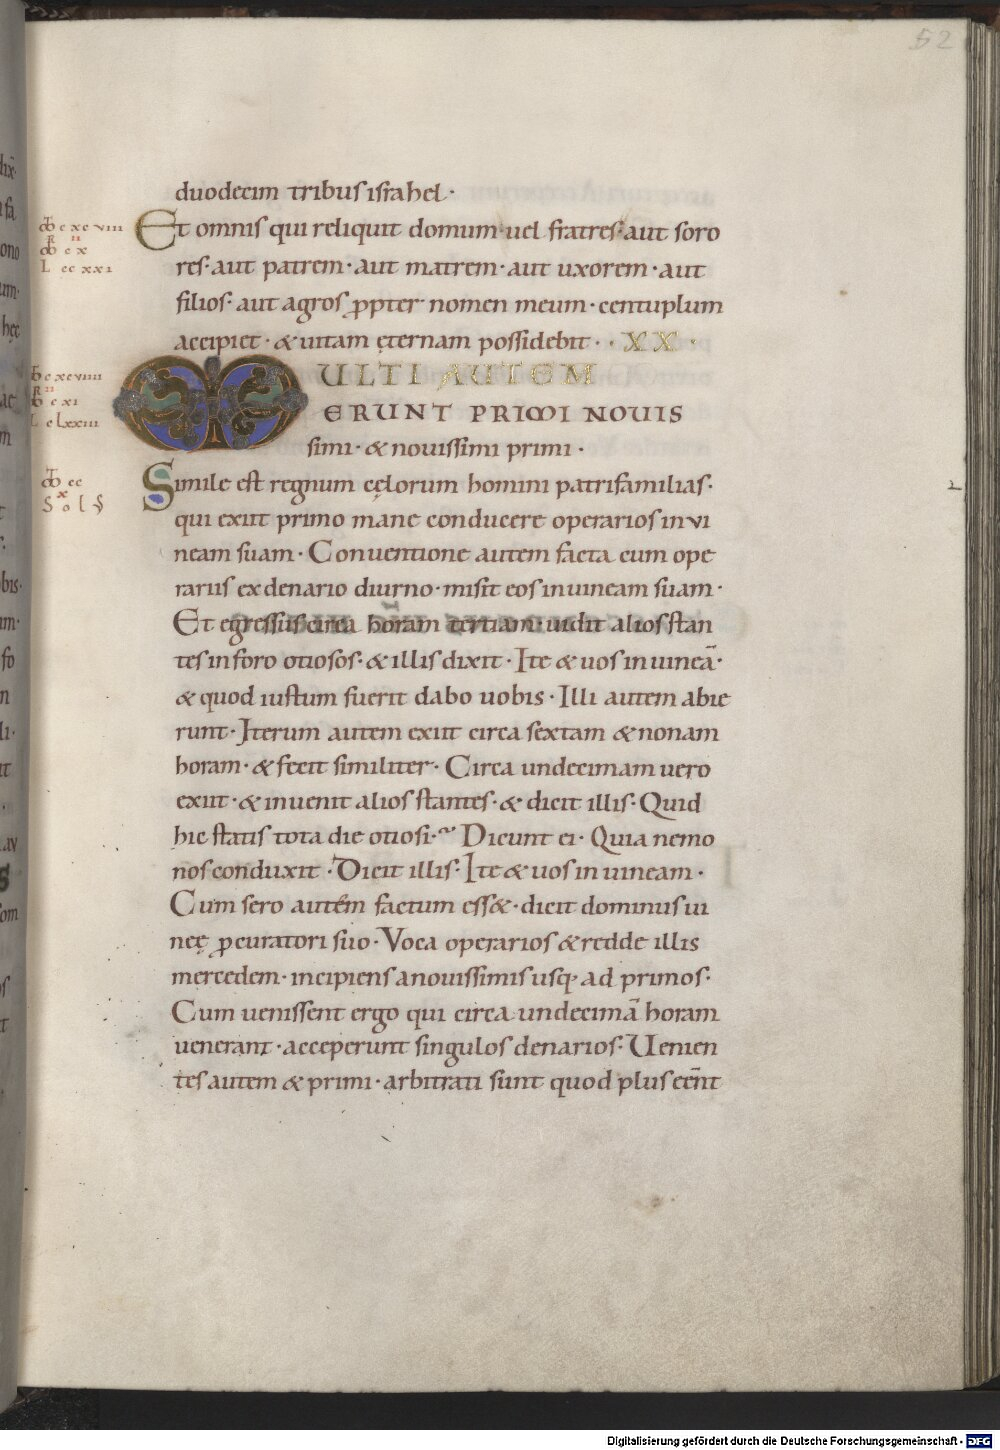 52
duodecim tribus israhel·
Et omnis qui reliquit domum·uel fratres·aut soro
res·aut patrem·aut matrem·aut uxorem·aut
filios·aut agros ꝓpter nomen meum·centuplum
accipiet·& uitam ęternam possidebit··XX·
MULTI AUTEM
ERUNT PRIMI NOVIS
simi·& nouissimi primi·
Simile est regnum cęlorum homini patrifamilias·
qui exiit primo mane conducere operarios in vi
neam suam·Conuentione autem facta cum ope
rariis ex denario diurno·misit eos in uineam suam·
Et egressus circa horam tertiam·uidit alios stan
tes in foro otiosos·& illis dixit·Ite & uos in uineā·
& quod iustum fuerit dabo uobis·Illi autem abie
runt·Iterum autem exiit circa sextam & nonam
horam·& fecit similiter·Circa undecimam uero
exiit·& inuenit alios stantes·& dicit illis·Quid
hic statis tota die otiosi·~ Dicunt ei·Quia nemo
nos conduxit·Dicit illis·Ite & uos in uineam·
Cum sero autem factum ess&·dicit dominus ui
neę ꝓcuratori suo·Voca operarios & redde illis
mercedem·incipiens a nouissimis usq; ad primos·
Cum uenissent ergo qui circa undecimā horam
uenerant·acceperunt singulos denarios·Uenien
tes autem & primi·arbitrati sunt quod plus eēnt
Digitalisierung gefördert durch die Deutsche Forschungsgemeinschaft - DFG